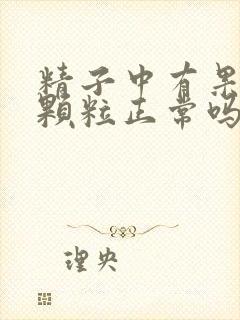 精子中有果
颗粒正常吗
理央